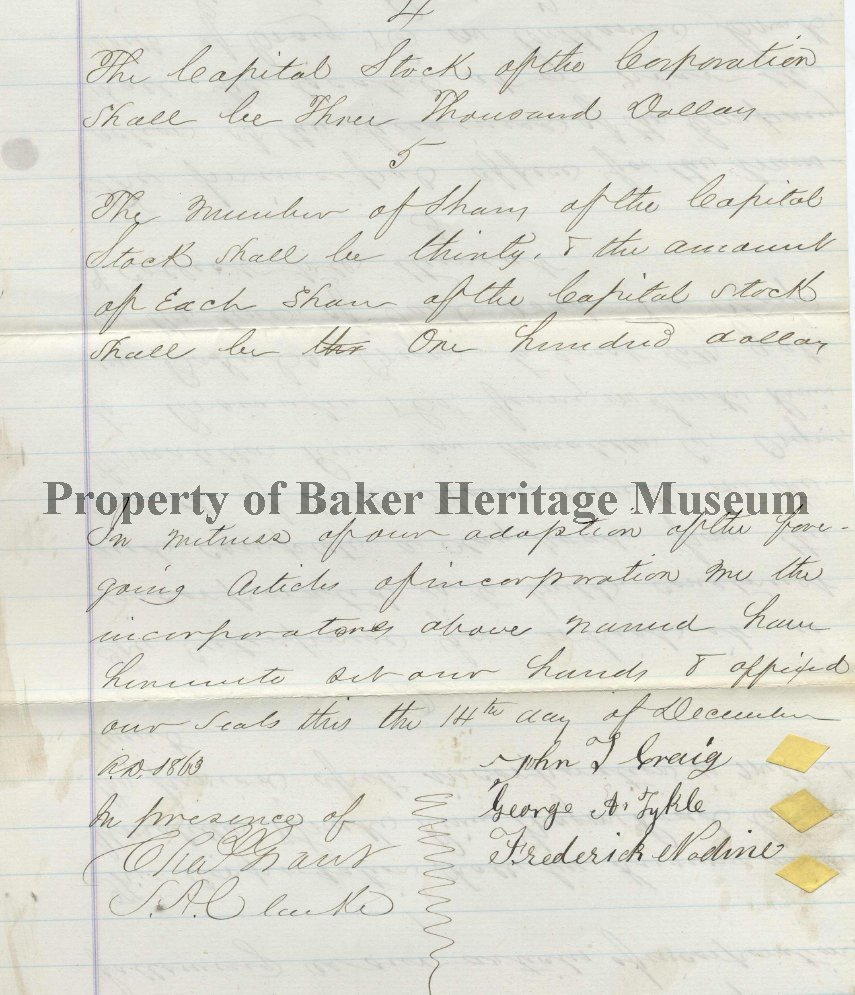 4
The Capital Stock of the Corporation
Shall be Three Thousand Dollars
5
The number of Shares of the Capital
Stock Shall be thirty, & the amount
of Each Share of the Capital Stock
Shall be the One hundred dollars
Property of Baker Heritage Museum
In witness of our adoption of the fore-
going Articles of incorporation we the
incorporators above named have
hereunto set our hands & affixed
our Seals this the 14th day of December
A.D. 1863
John T Craig
In presence of
George A. Tykle
Chas Grant
Frederick Nodine
S. A. Clarke